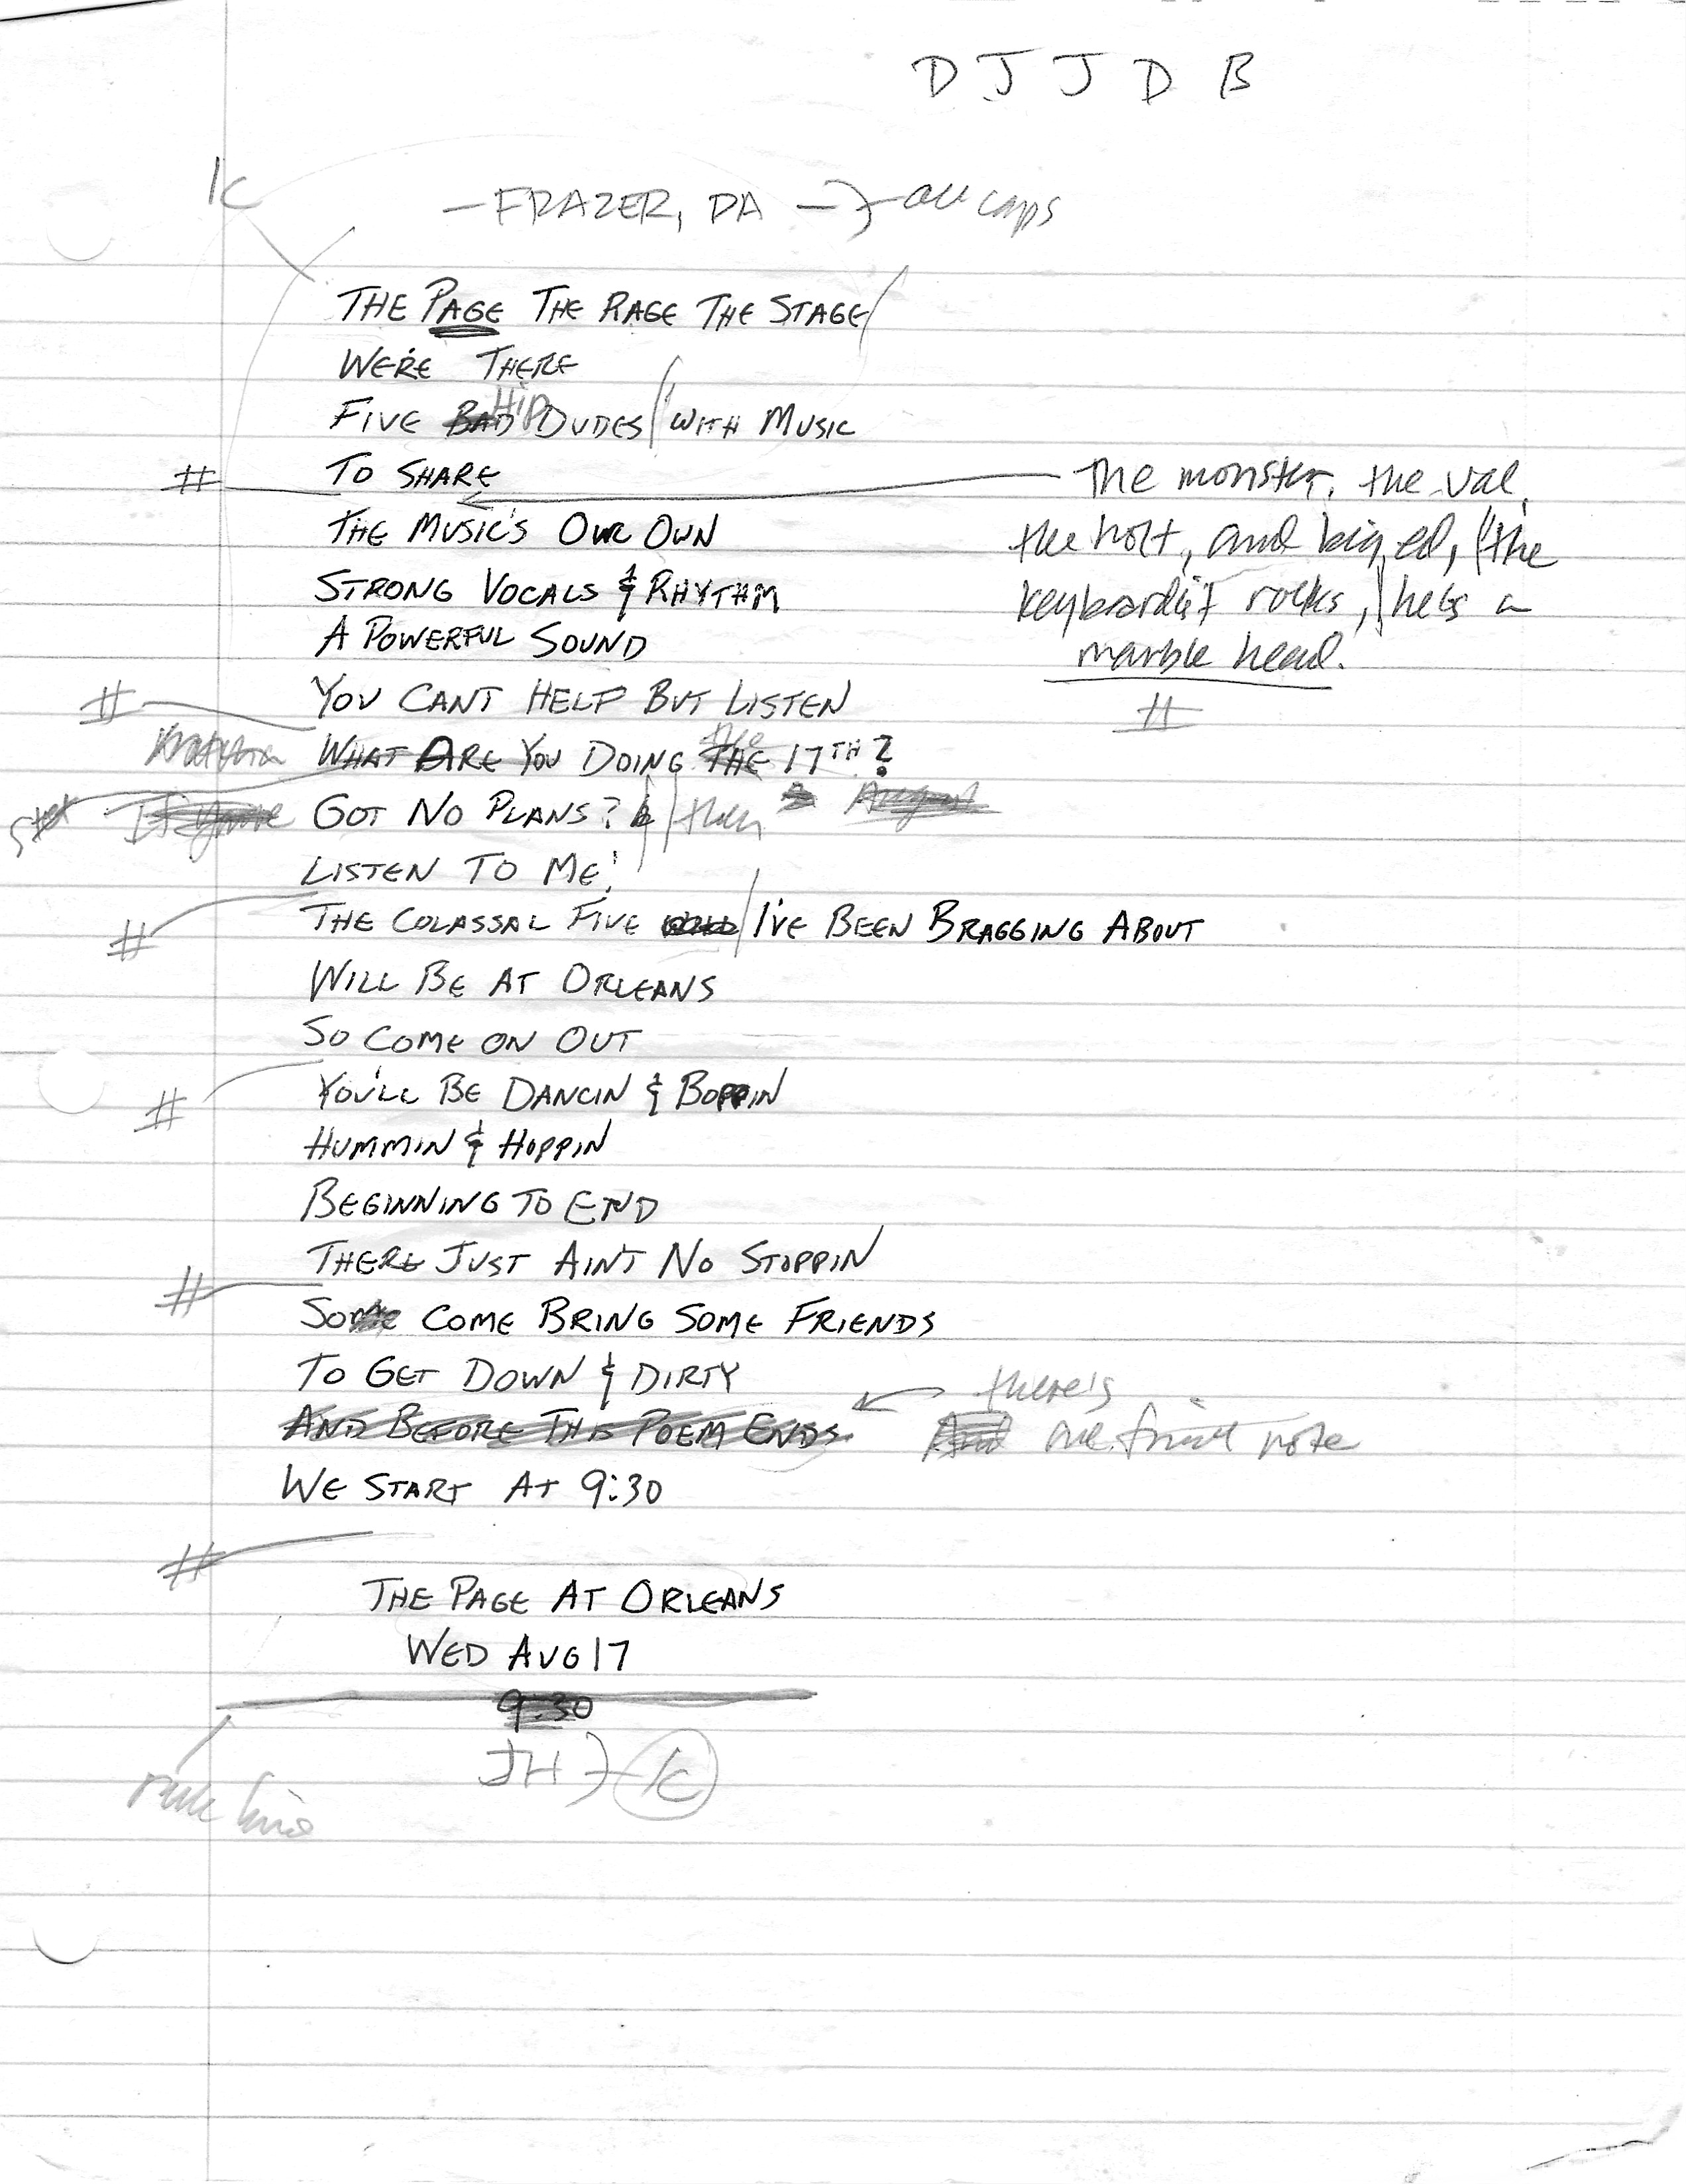 D J J D B
lc
— FRAZER, PA — all caps
THE PAGE THE RAGE THE STAGE/
WE'RE THERE
FIVE BAD Hip DUDES / WITH MUSIC
# TO SHARE
The monster, the val,
the holt, and big ed, / the
keyboardist rocks, / he's a
marble head.
#
THE MUSIC'S OUR OWN
STRONG VOCALS & RHYTHM
A POWERFUL SOUND
# YOU CANT HELP BUT LISTEN
WHAT ARE YOU DOING THE the 17TH?
stet If you're GOT NO PLANS? / then August
LISTEN TO ME!
# THE COLASSAL FIVE / I'VE BEEN BRAGGING ABOUT
WILL BE AT ORLEANS
SO COME ON OUT
# YOU'LL BE DANCIN & BOPPIN
HUMMIN & HOPPIN
BEGINNING TO END
THERE JUST AIN'T NO STOPPIN
# SO COME BRING SOME FRIENDS
TO GET DOWN & DIRTY
AND BEFORE THIS POEM ENDS
there's
And one final note
WE START AT 9:30
#
THE PAGE AT ORLEANS
WED AUG 17
9:30
JH lc
rule line